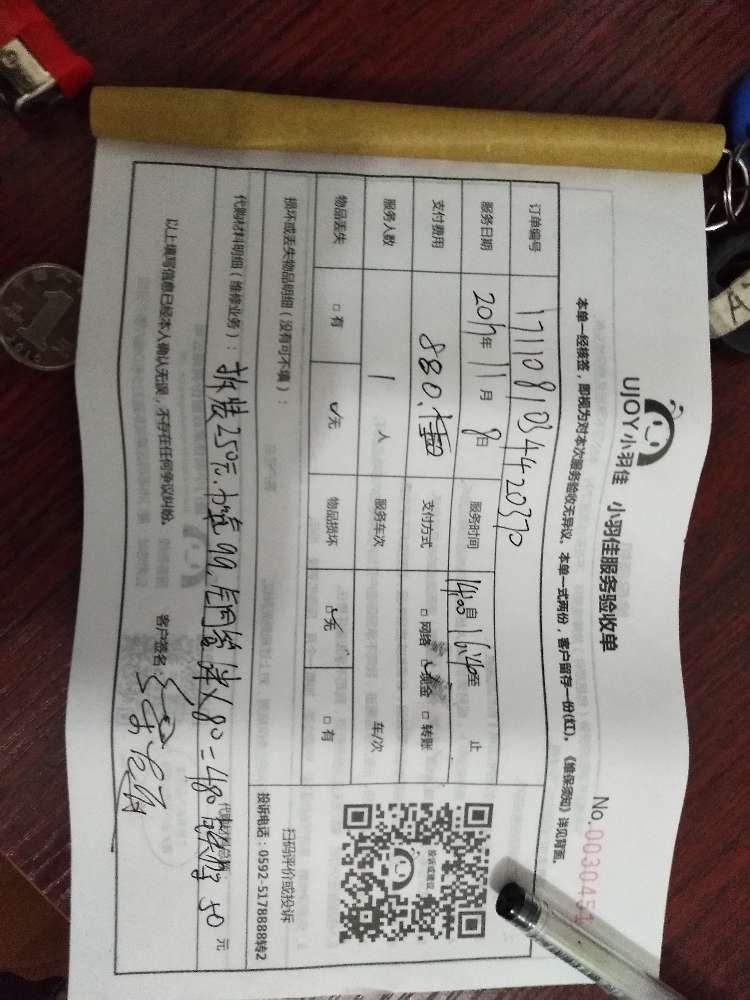 UJOY小羽佳 小羽佳服务验收单
No.0030451
本单一经核签，即视为对本次服务验收无异议。本单一式两份，客户留存一份(红)。《维保须知》详见背面。
订单编号 1711081034420370
服务日期 2017年 11月 8日 服务时间 14:00自 16:46至 止
支付费用 880. 支付方式 □网络 ☑现金 □转账
服务人数 1 人 服务车次 车/次
物品丢失 □有 ☑无 物品损坏 ☑无 □有
损坏或丢失物品明细（没有可不填）：
扫码评价或投诉
投诉电话：0592-5178888转2
投诉或建议
代购材料明细（维修业务）：拆装250元. 99 80=480 50
代购材料总额： 元
以上填写信息已经本人确认无误，不存在任何争议纠纷。
客户签名：